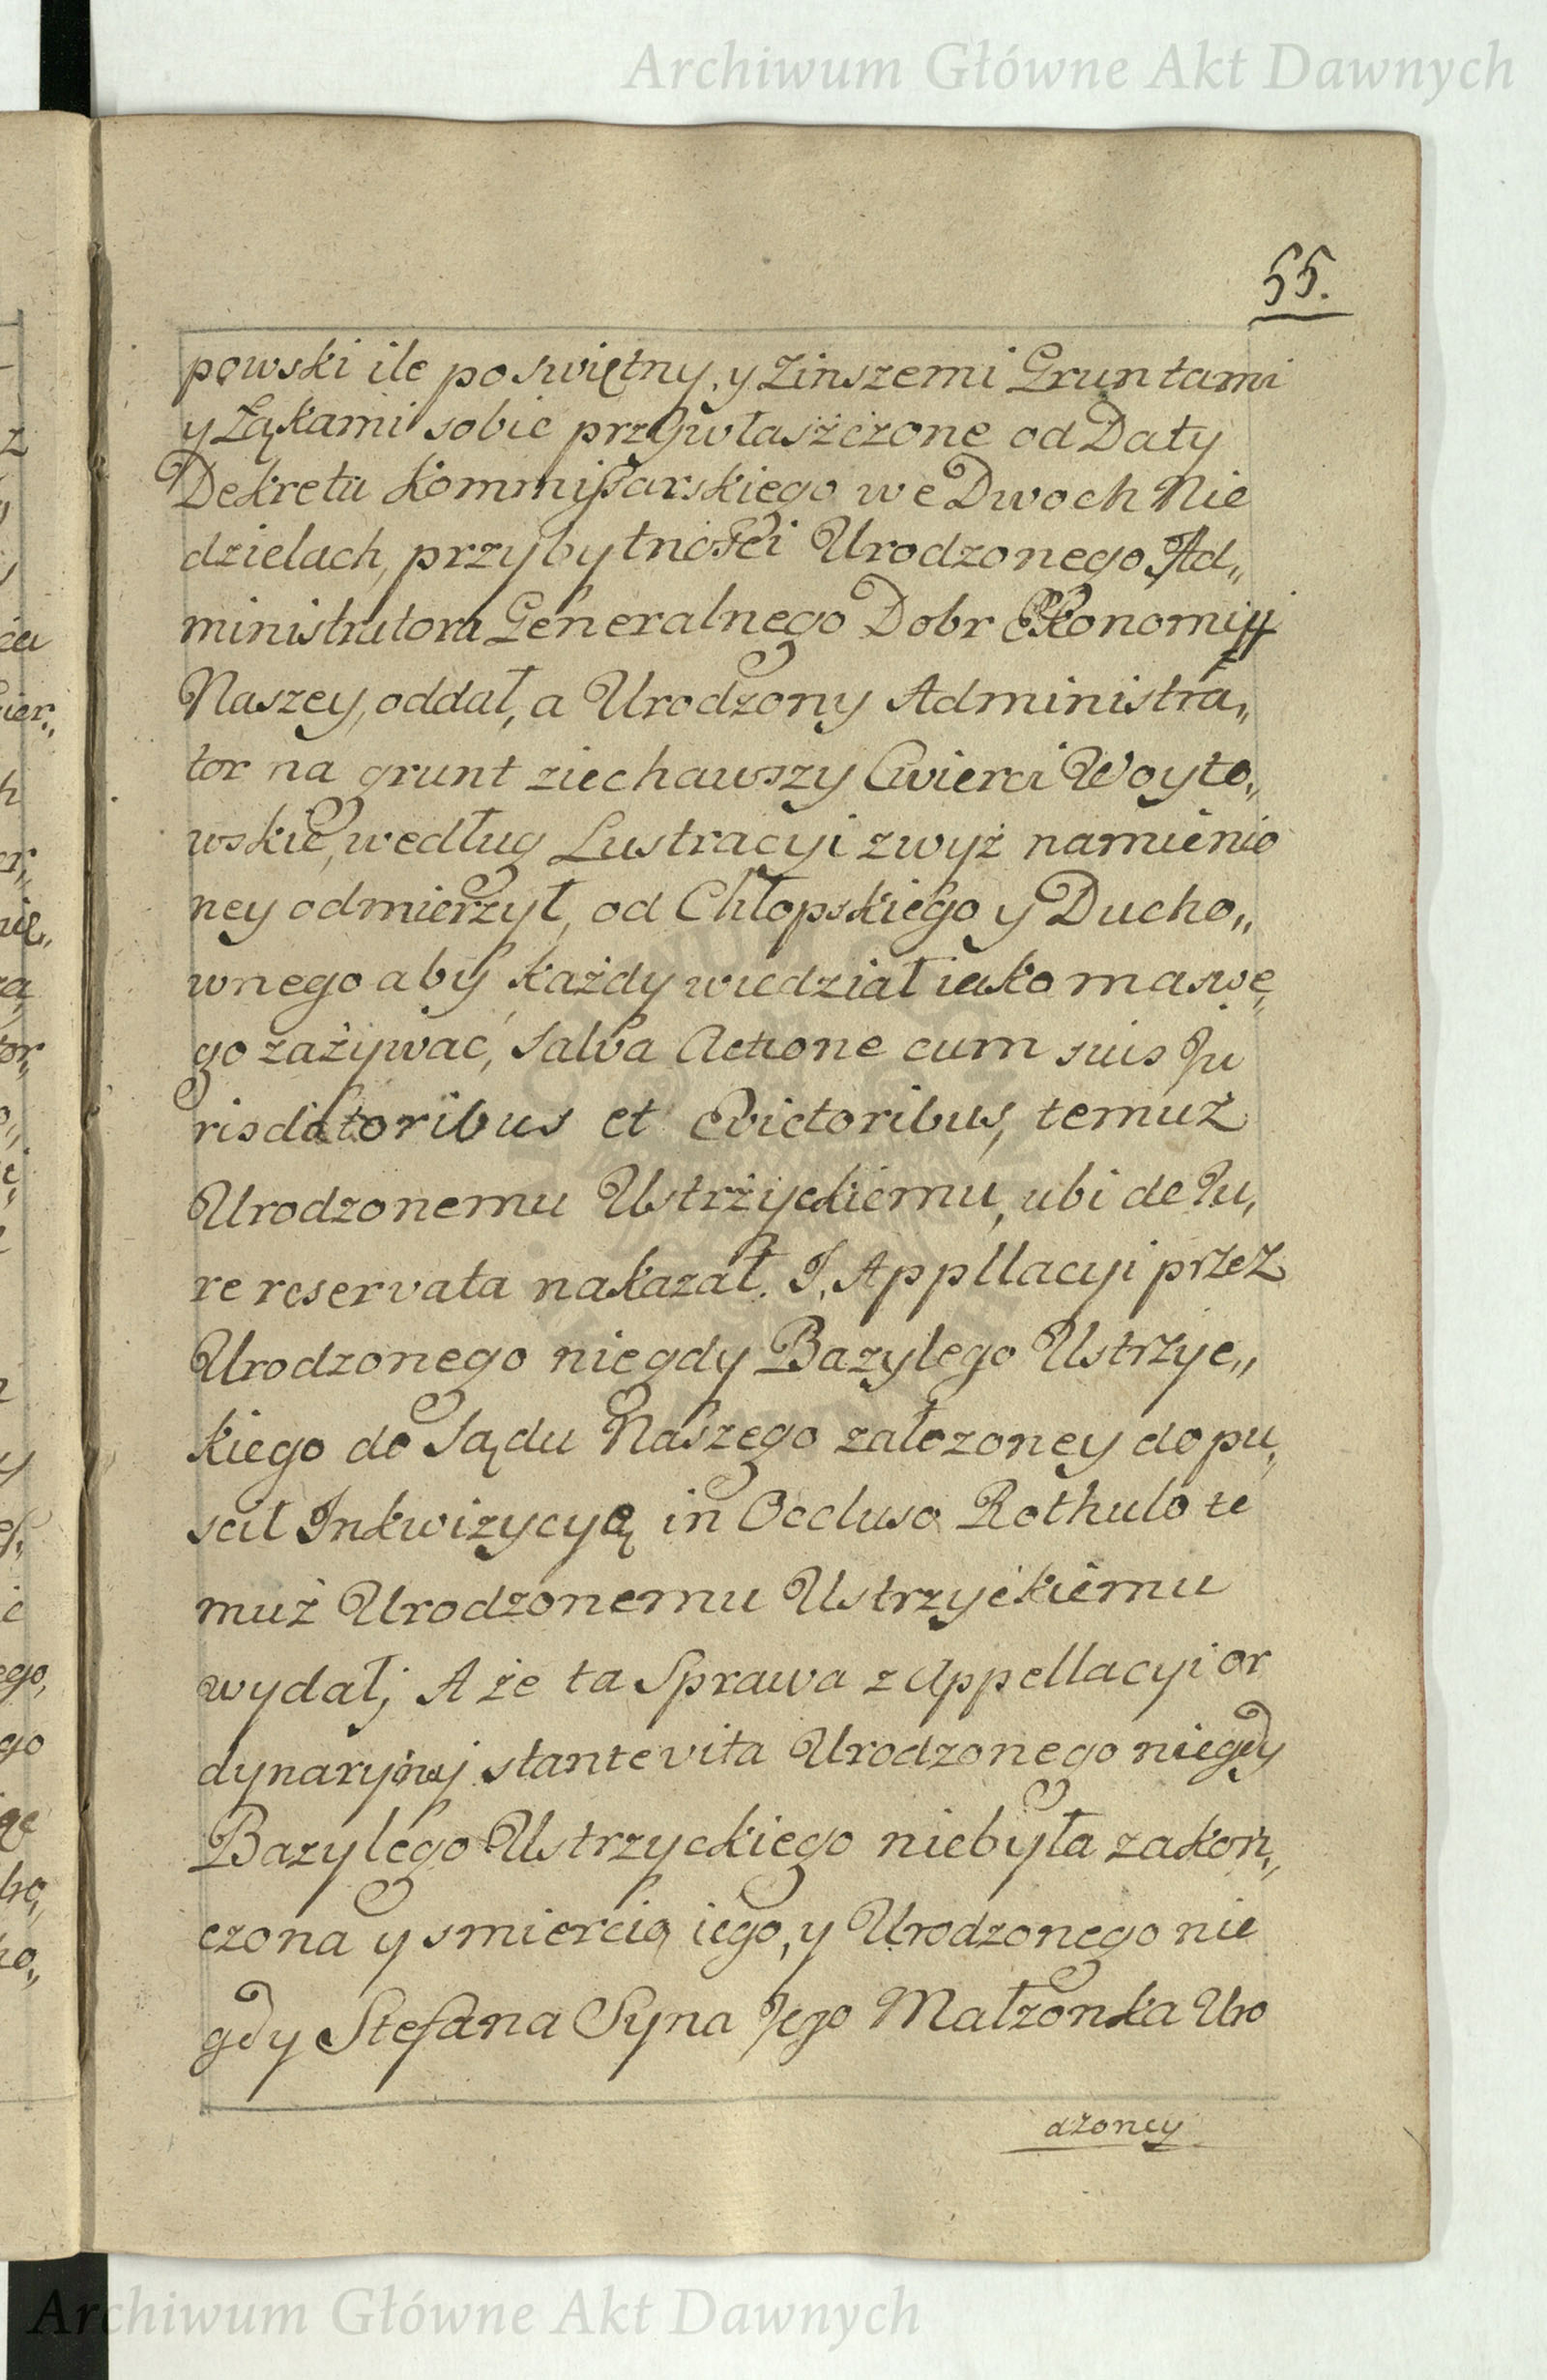 Archiwum Główne Akt Dawnych
55.
powski ile poswiętny, y Zinszemi Gruntami
y Łąkami sobie przywłaszczone od Daty
Dekretu Kommissarskiego we Dwoch Nie
dzielach, przybytności Urodzonego Ad„
ministratora Generalnego Dobr Ekonomiy
Naszey, oddał, a Urodzony Administra„
tor na grunt ziechawszy Cwierci Woyto„
wskie, według Lustracyi zwyż namienio
ney odmierzył, od Chłopskiego y Ducho„
wnego aby każdy wiedział iako ma swe„
go zażywać, salva Actione cum suis Ju
risdatoribus et Evictoribus, temuż
Urodzonemu Ustrzyckiemu, ubi de Ju„
re reservata nakazał. I, Appllacyi przez
Urodzonego niegdy Bazylego Ustrzyc„
kiego do Sądu Naszego założoney dopu„
scil Inkwizycyą in Occluso Rothulo te
muż Urodzonemu Ustrzyckiemu
wydał; A że ta Sprawa z Appellacyi or
dynaryiney stante vita Urodzonego niegdy
Bazylego Ustrzyckiego niebyła zakoń„
czona y smiercią iego, y Urodzonego nie
gdy Stefana Syna Jego Małżonka Uro
dzoney
Archiwum Główne Akt Dawnych